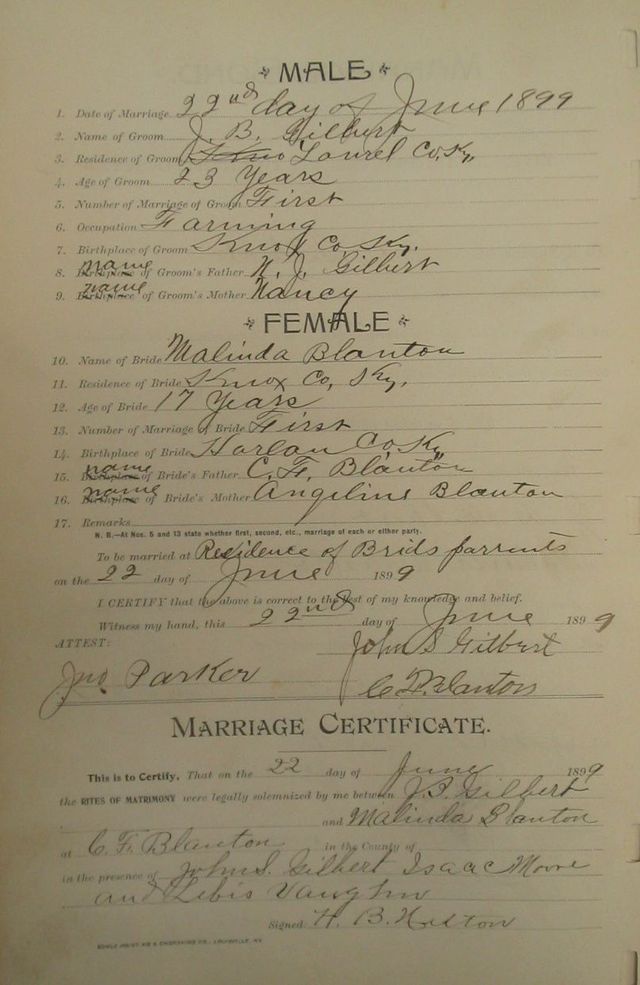 MALE
1. Date of Marriage 22nd day of June 1899
2. Name of Groom J. B. Gilbert
3. Residence of Groom Knox Laurel Co, Ky,
4. Age of Groom 23 Years
5. Number of Marriage of Groom First
6. Occupation Farming
7. Birthplace of Groom Knox Co Ky.
8. Birthplace name of Groom's Father N. J. Gilbert
9. Birthplace name of Groom's Mother Nancy
FEMALE
10. Name of Bride Malinda Blanton
11. Residence of Bride Knox Co, Ky,
12. Age of Bride 17 Years
13. Number of Marriage of Bride First
14. Birthplace of Bride Harlan Co Ky
15. Birthplace name of Bride's Father C. F. Blanton
16. Birthplace name of Bride's Mother Angeline Blanton
17. Remarks
N. B.—At Nos. 5 and 13 state whether first, second, etc., marriage of each or either party.
To be married at Residence of Brids parrents
on the 22 day of June 1899
I CERTIFY that the above is correct to the best of my knowledge and belief.
Witness my hand, this 22nd day of June 1899
ATTEST: John S Gilbert
Jno Parker C F Blanton
MARRIAGE CERTIFICATE.
This is to Certify, That on the 22 day of June 1899
the RITES OF MATRIMONY were legally solemnized by me between J. B. Gilbert
and Malinda Blanton
at C. F. Blanton in the County of
in the presence of John S. Gilbert Isaac Moore
and Vaughn
Signed H. B.